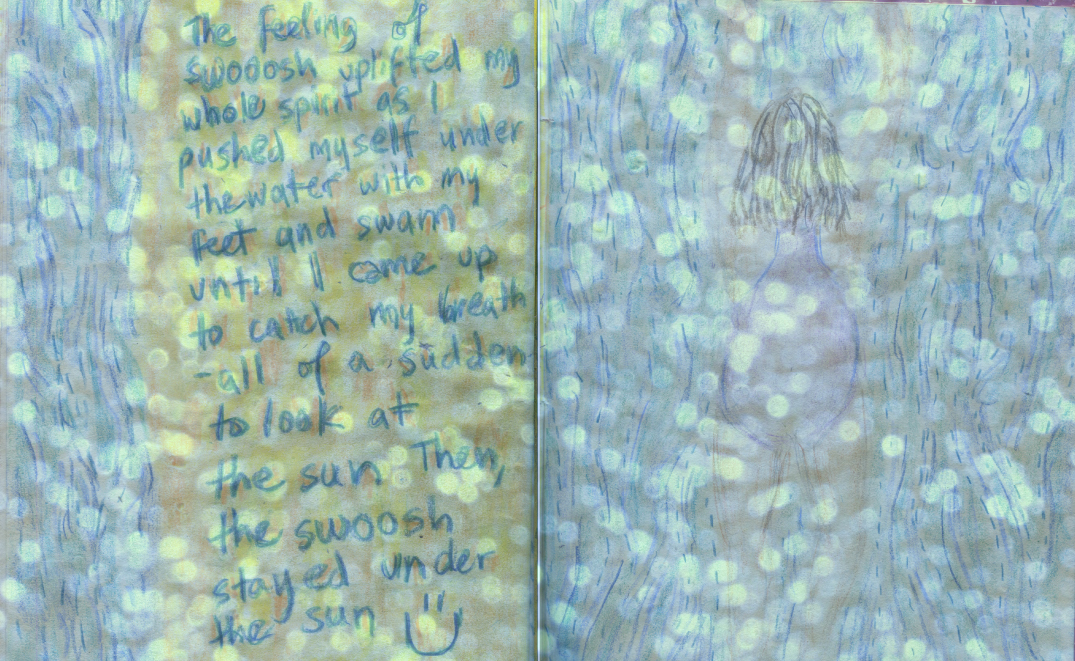 The feeling of
swooosh uplifted my
whole spirit as I
pushed myself under
the water with my
feet and swam
until I came up
to catch my breath
-all of a sudden
to look at
the sun Then,
the swoosh
stayed under
the sun